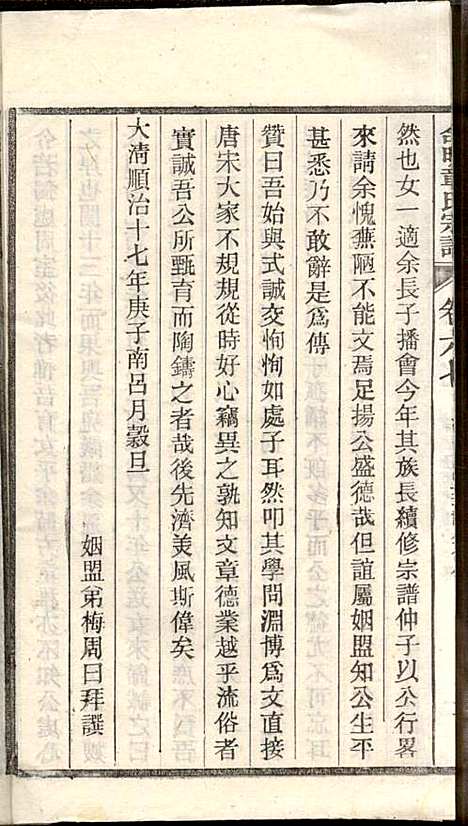 章氏宗譜
卷六七
然也女一適余長子播會今年其族長續修宗譜仲子以公行畧
來請余愧蕪陋不能文焉足揚公盛德哉但誼屬姻盟知公生平
甚悉乃不敢辭是爲傳
贊曰吾始與式誠交恂恂如處子耳然叩其學問淵博爲文直接
唐宋大家不規規從時好心竊異之孰知文章德業越乎流俗者
實誠吾公所甄育而陶鑄之者哉後先濟美風斯偉矣
大清順治十七年庚子南呂月穀旦
姻盟弟梅周日拜譔